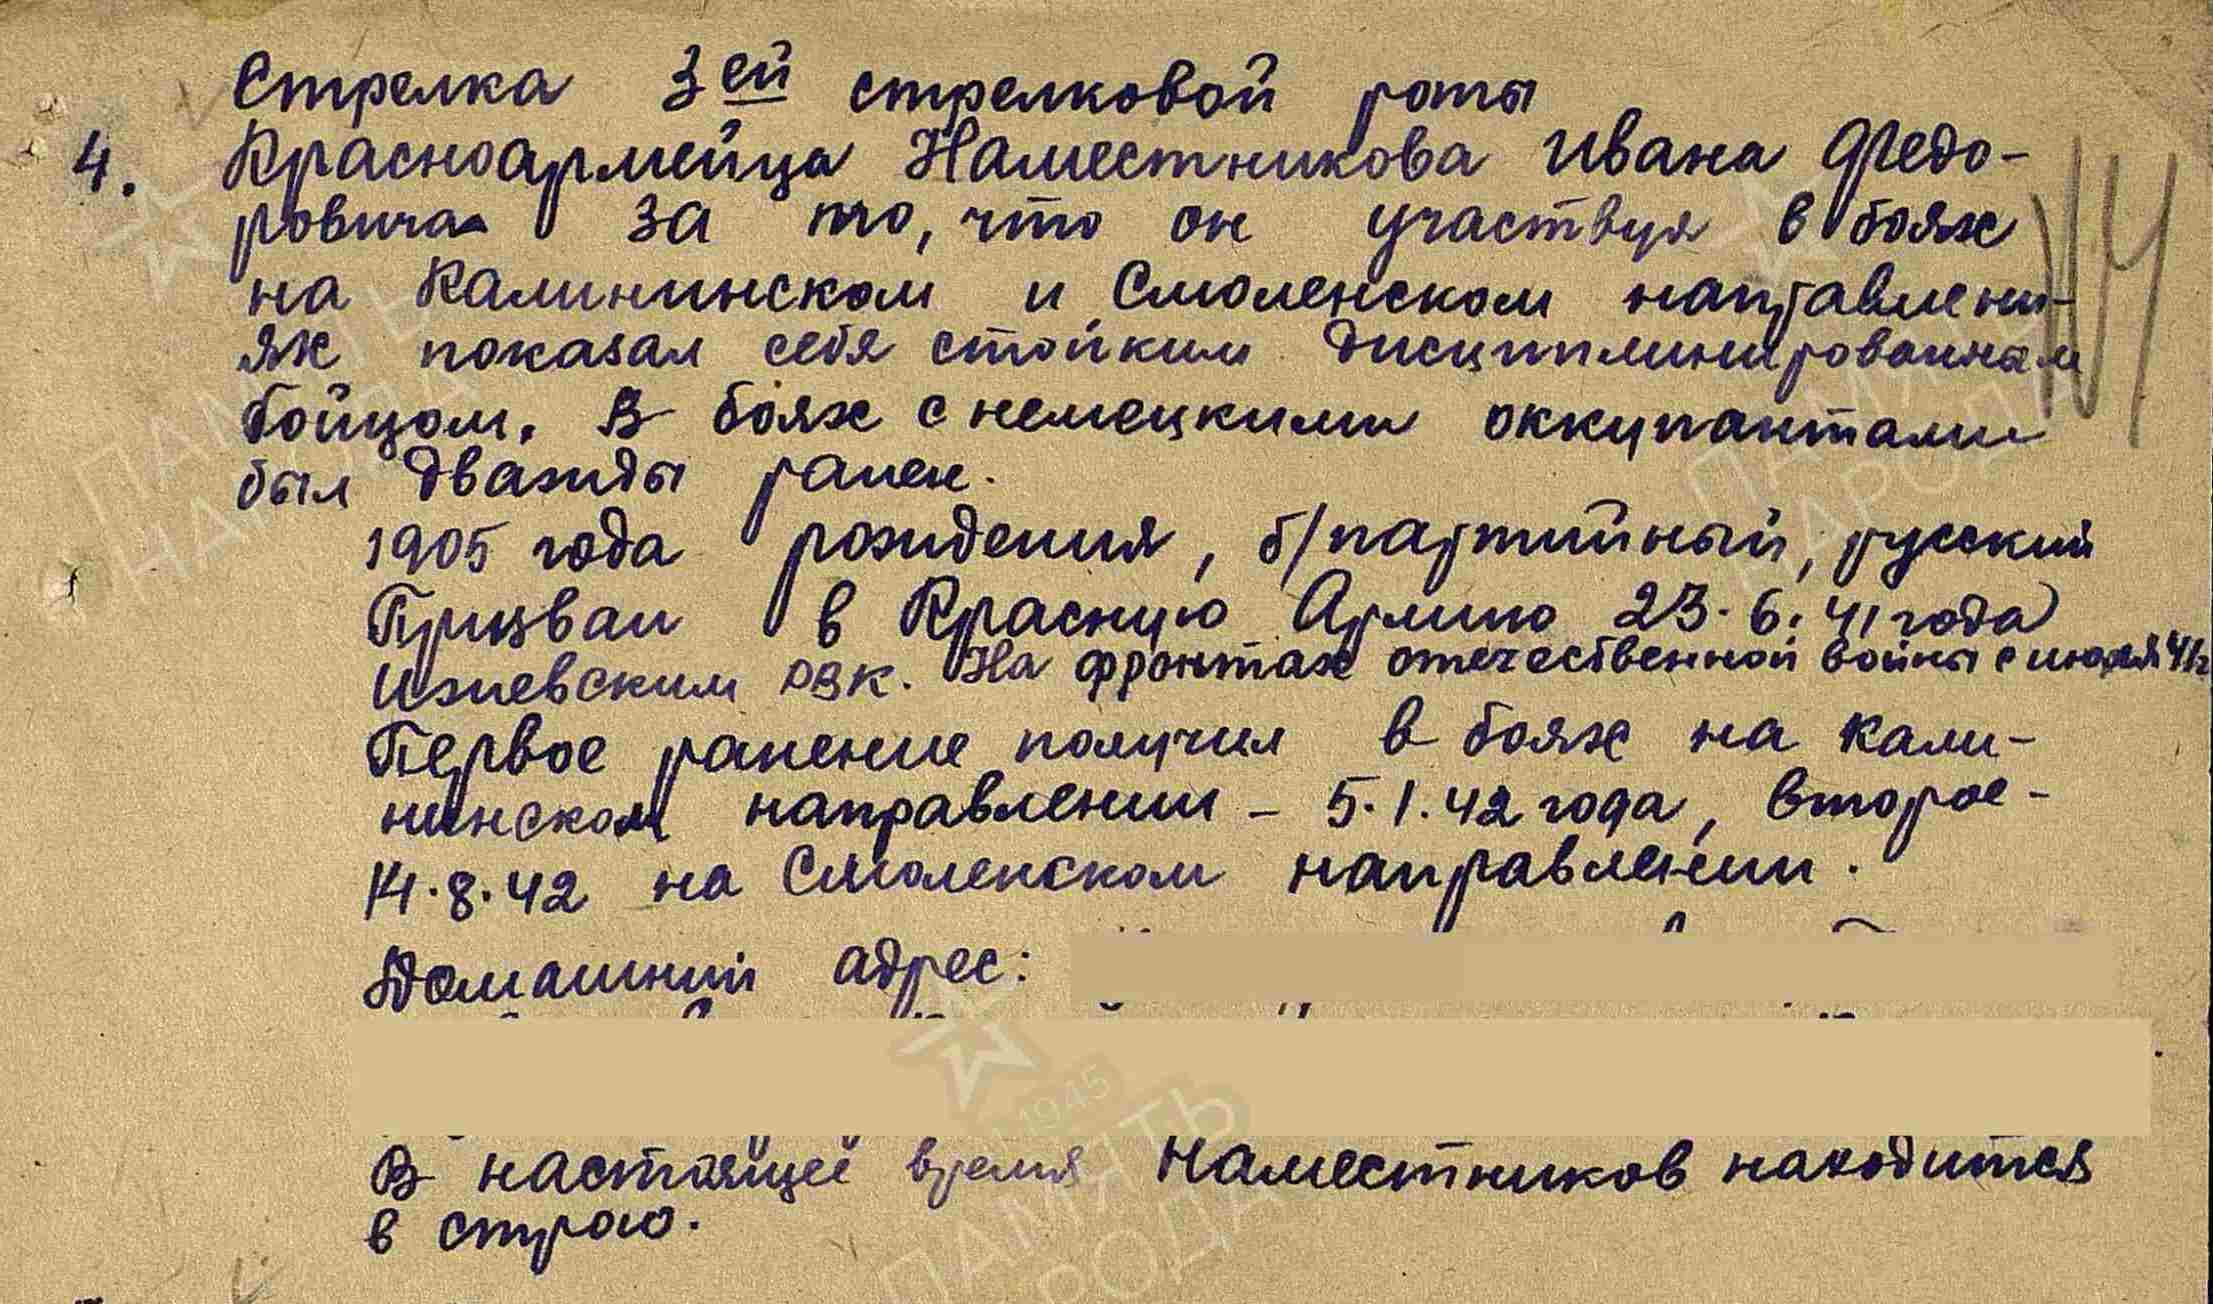 Стрелка 3ей стрелковой роты
4. Красноармейца Наместникова Ивана Федо-
ровича за то, что он участвуя в боях
на Калининском и Смоленском направлени-
ях показал себя стойким дисциплинированным
бойцом. В боях с немецкими оккупантами
был дважды ранен.
1905 года рождения, б/партийный, русский
Призван в Красную Армию 23.6.41 года
Ижевским РВК. На фронтах отечественной войны с июля 41г
Первое ранение получил в боях на кали-
нинском направлении - 5.1.42 года, второе -
14.8.42 на Смоленском направлении.
Домашний адрес:
В настоящее время Наместников находится
в строю.
ПАМЯТЬ НАРОДА
ПАМЯТЬ НАРОДА
1945
ПАМЯТЬ